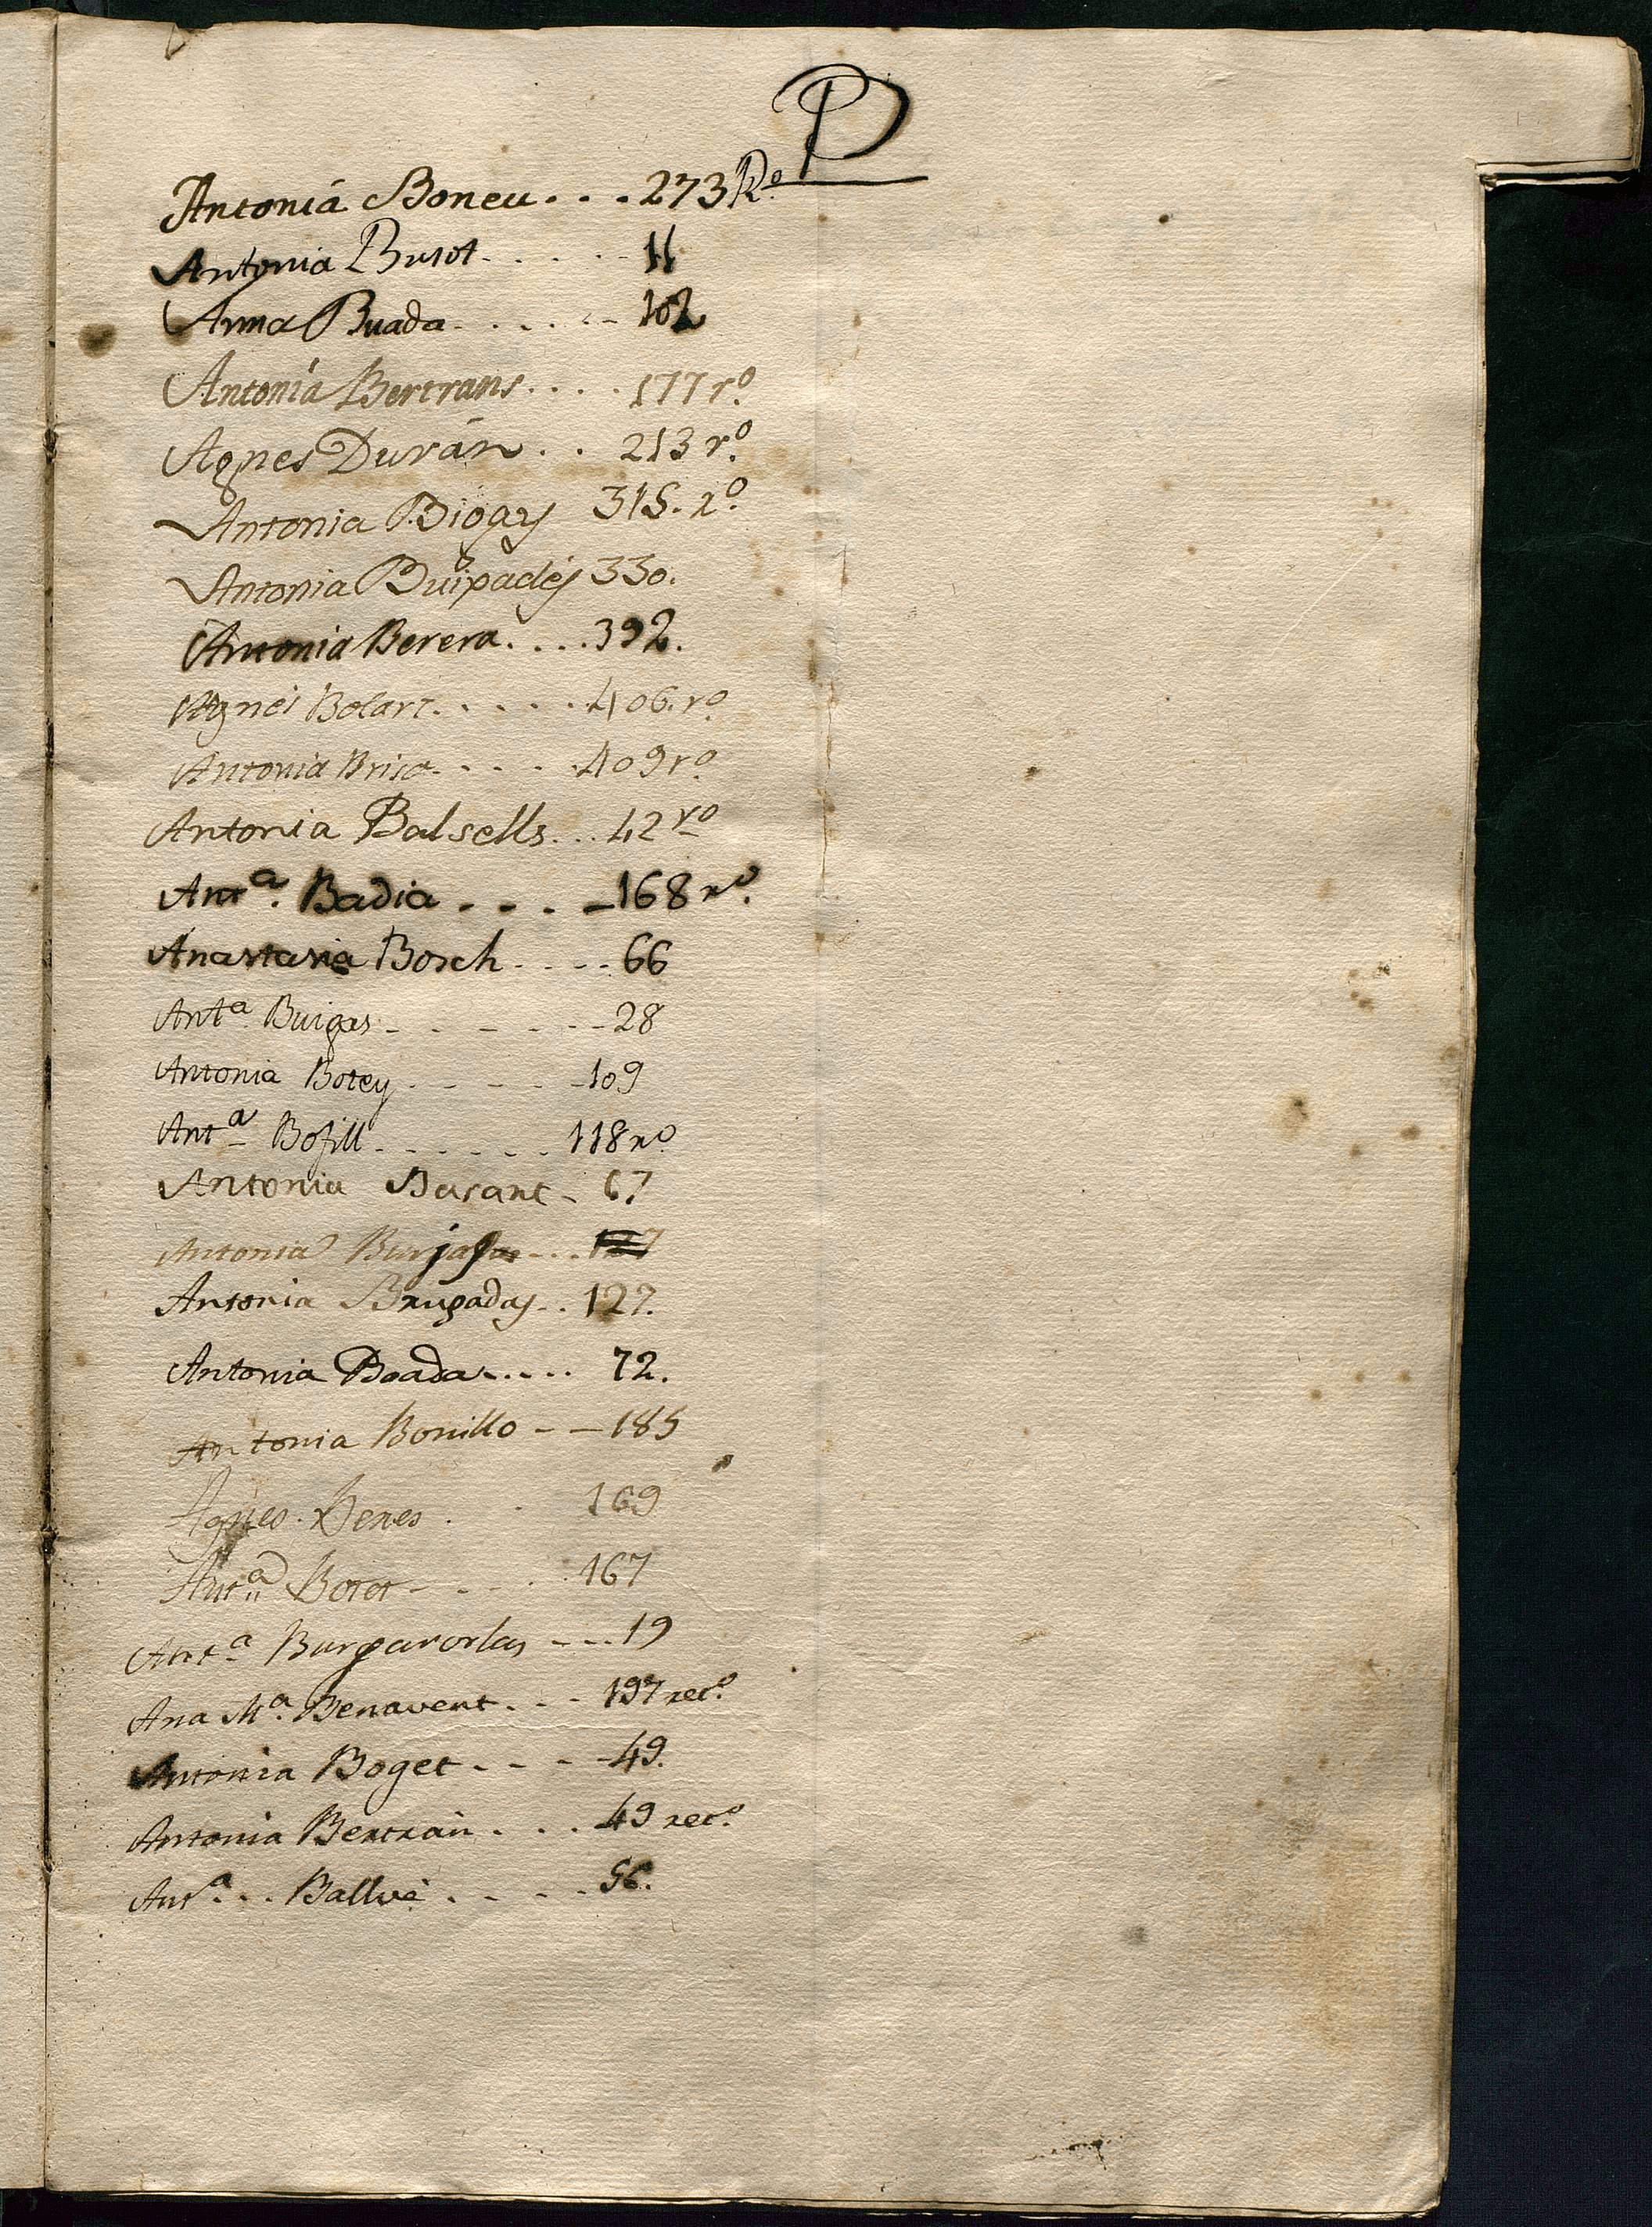 B
Antoniá Boneu . . . 273 Rº
Antonia Busot . . . . . 11
Anna Buada . . . . . 102
Antonia Bertrans . . . . 177 rº
Agnes Durán . . 213 rº
Antonia Biogas 315. rº
Antonia Buixadés 330.
Antonia Berera . . . . 392.
Agnés Bolart . . . . . 406. rº
Antonia Brisa . . . . 409 rº
Antonia Balsells . . . 42 rº
Antª. Badia . . . . 168 rº.
Anastasia Bosch . . . . 66
Antª Buigas - - - - - - 28
Antonia Botey . - - - - 109
Antª Bofill - . . . . . 118 rº
Antonia Basant - 67
Antonia Burjas - - . . 127
Antonia Brugadas . . 127.
Antonia Boada . . . . . 72.
Antonia Bonillo - - 185
Agnes Beres . . 169
Antª Botet - - . . 167
Antª Burgarorlas - - - 19
Ana Mª. Benavent . - - 197 recº.
Antonia Boget - - - - 49.
Antonia Bertrán . . . 49 recº.
Antª. . . Ballvé . - - - 56.